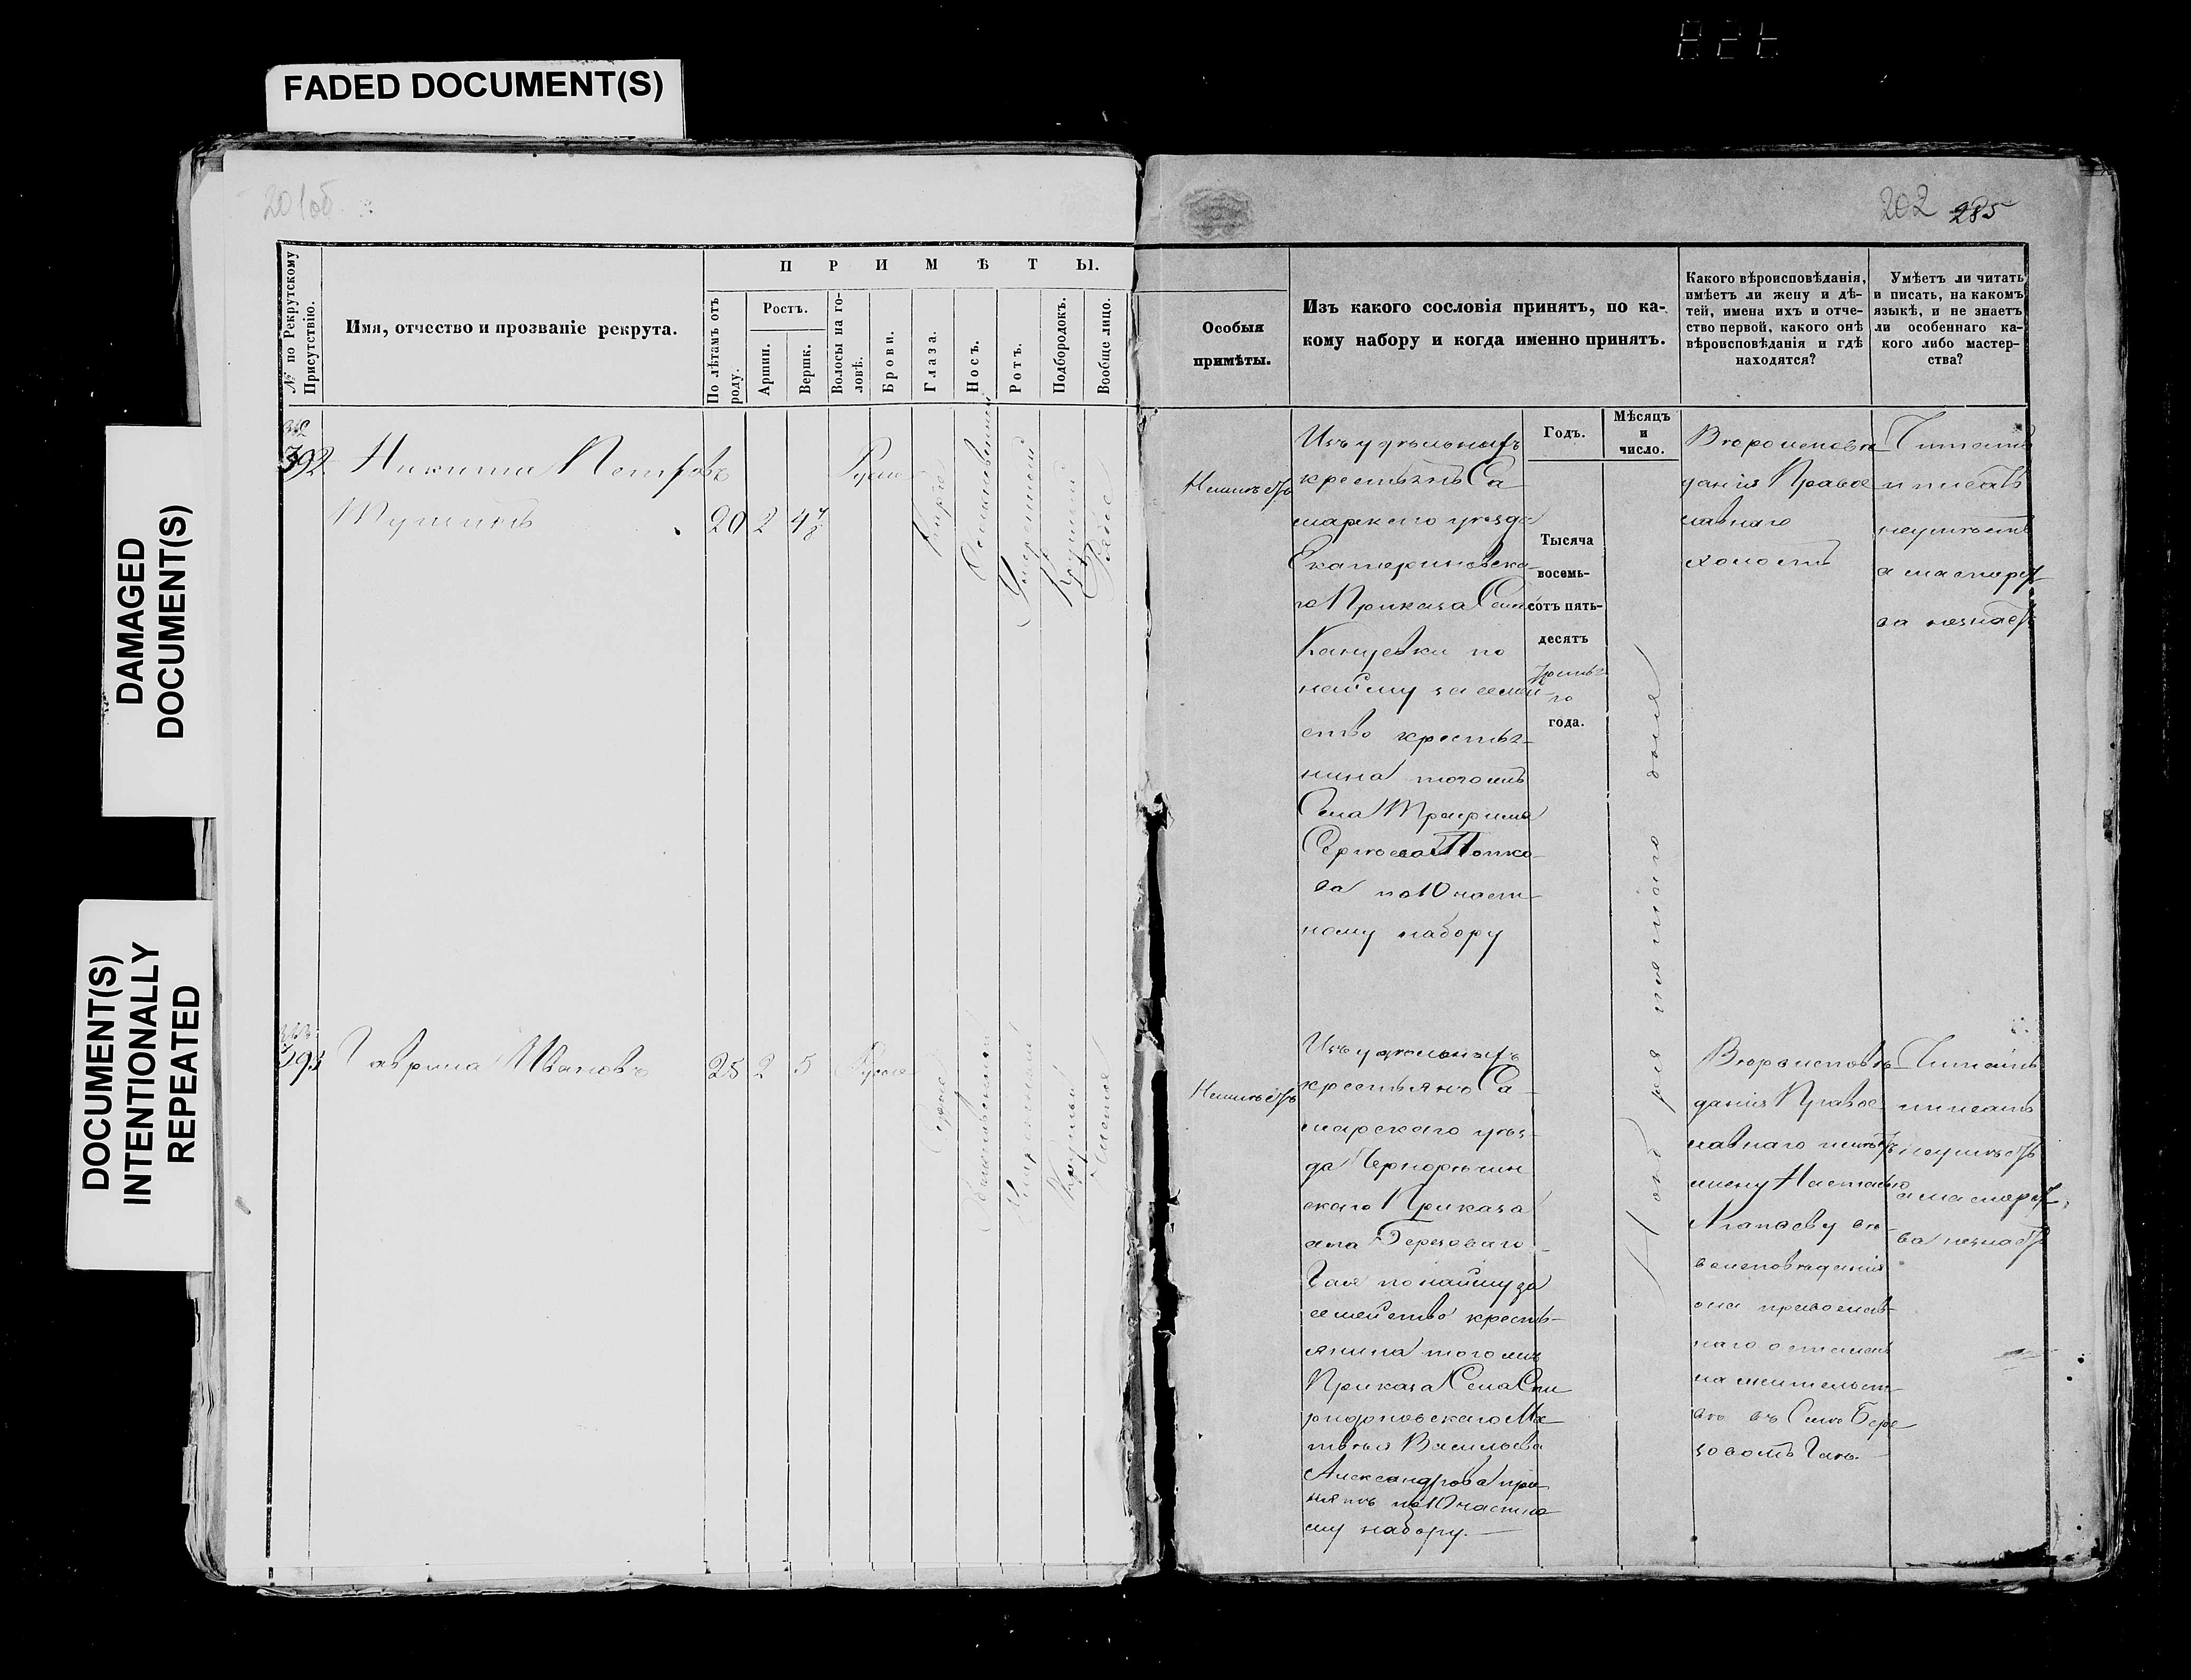 FADED DOCUMENT(S)
DAMAGED
DOCUMENT(S)
DOCUMENT(S)
INTENTIONALLY
REPEATED
201об
202 285
№ по Рекрутскому
Присутствію.
Имя, отчество и прозваніе рекрута.
П Р И М Ѣ Т Ы.
По лѣтамъ отъ
роду.
Ростъ.
Аршин.
Вершк.
Волосы на го-
ловѣ.
Брови.
Глаза.
Носъ.
Ротъ.
Подбородокъ.
Вообще лицо.
Особыя
примѣты.
Изъ какого сословія принятъ, по ка-
кому набору и когда именно принятъ.
Какого вѣроисповѣданія,
имѣетъ ли жену и дѣ-
тей, имена ихъ и отче-
ство первой, какого онѣ
вѣроисповѣданія и гдѣ
находятся?
Умѣетъ ли читать
и писать, на какомъ
языкѣ, и не знаетъ
ли особеннаго ка-
кого либо мастер-
ства?
Годъ.
Мѣсяцъ
и
число.
392
Никита Петровъ
20 2 4
Русые
Умеренный
Неимѣетъ
Изъ удѣльныхъ
крестьянъ Са-
марскаго уѣзда
Екатериновска-
го Приказа Села
Кануевки по
найму за семей-
ство крестья-
нина тогожъ
Села Трафима
Сергѣева Попко-
ва по 10 част-
ному набору
Тысяча
восемь-
сотъ пять-
десятъ
третья-
го
года.
Вѣроисповѣ-
данія Правос-
лавнаго
холостъ
Читать
и писать
неумѣетъ
а мастерст-
ва незнаетъ
Ноября пятаго дня
393
Гаврила Ивановъ
25 2 5
Русые
Серые
Умеренный
Круглый
Чистое
Неимѣетъ
Изъ удѣльныхъ
крестьянъ Са-
марскаго уѣз-
да Чернорѣчин
скаго Приказа
села Березоваго
Гая по найму за
семейство кресть-
янина тогожъ
Приказа Села Спи
ридоновскаго Ма
твѣя Васильева
Александрова при
нятъ по 10 частно
му набору.
Вѣроисповѣ-
данія Правос-
лавнаго имѣетъ
жену Настасью
Агапаеву ве-
роисповѣданія
она православ-
наго осталась
на жительст-
вѣ въ Селѣ Бере
зовомъ Гаѣ.
Читать
и писать
неумѣетъ
а мастерст-
ва незнаетъ